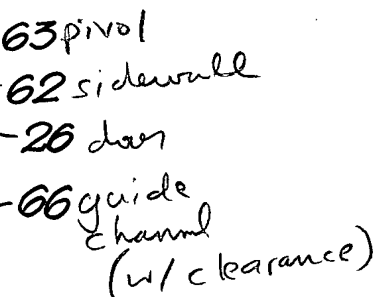 63 pivot
62 sidewall
26 door
66 guide
channel
(w/ clearance)